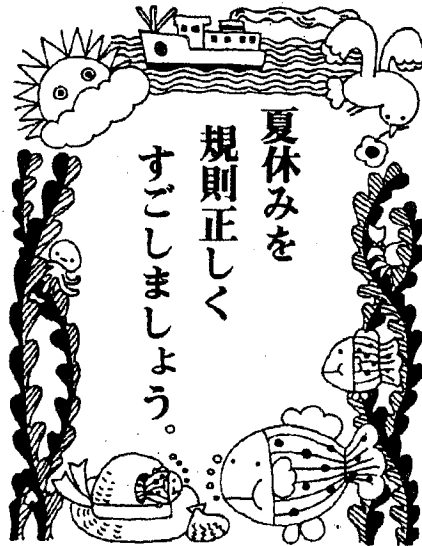 夏休みを
規則正しく
すごしましょう。